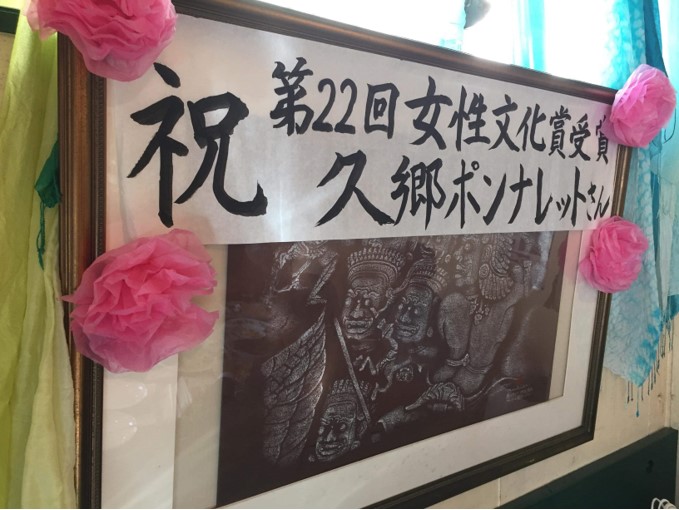 祝
第22回女性文化賞受賞
久郷ポンナレットさん